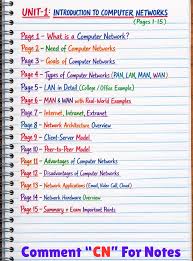 UNIT-1: INTRODUCTION TO COMPUTER NETWORKS
(Pages 1-15)
Page 1 - What is a Computer Network?
Page 2 - Need of Computer Networks
Page 3 - Goals of Computer Networks
Page 4 - Types of Computer Networks (PAN, LAN, MAN, WAN)
Page 5 - LAN in Detail (College / Office Example)
Page 6 - MAN & WAN with Real-World Examples
Page 7 - Internet, Intranet, Extranet
Page 8 - Network Architecture Overview
Page 9 - Client-Server Model
Page 10 - Peer-to-Peer Model
Page 11 - Advantages of Computer Networks
Page 12 - Disadvantages of Computer Networks
Page 13 - Network Applications (Email, Video Call, Cloud)
Page 14 - Network Hardware Overview
Page 15 - Summary + Exam Important Points
Comment "CN" For Notes